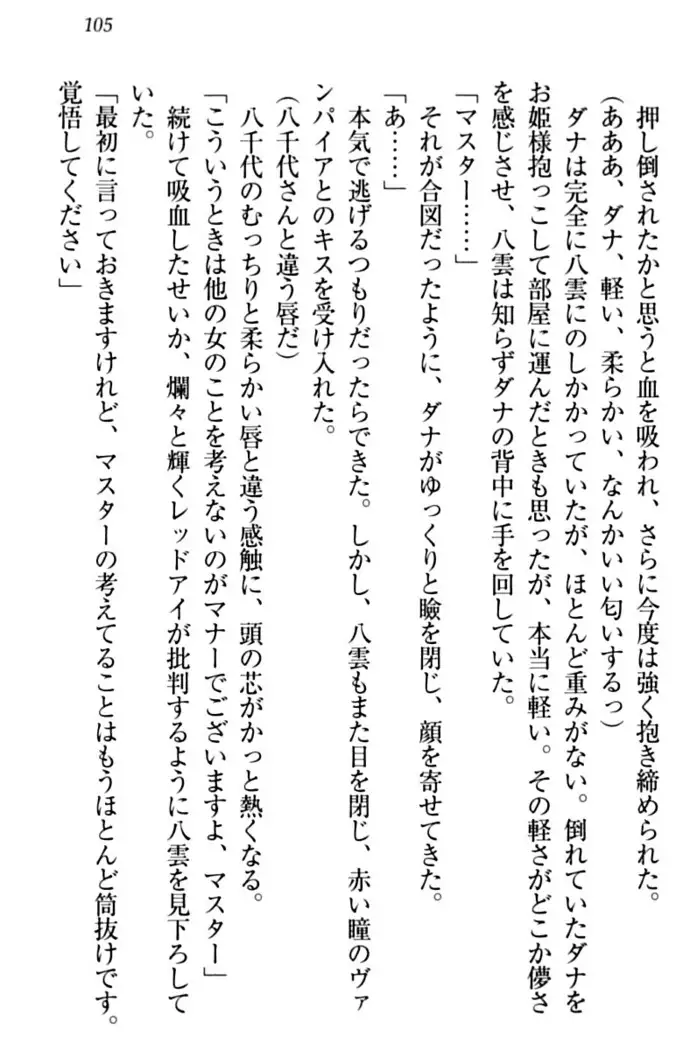 105
押し倒されたかと思うと血を吸われ、さらに今度は強く抱き締められた。
(あああ、ダナ、軽い、柔らかい、なんかいい匂いするっ)
ダナは完全に八雲にのしかかっていたが、ほとんど重みがない。倒れていたダナを
お姫様抱っこして部屋に運んだときも思ったが、本当に軽い。その軽さがどこか儚さ
を感じさせ、八雲は知らずダナの背中に手を回していた。
「マスター……」
それが合図だったように、ダナがゆっくりと瞼を閉じ、顔を寄せてきた。
「あ……」
本気で逃げるつもりだったらできた。しかし、八雲もまた目を閉じ、赤い瞳のヴァ
ンパイアとのキスを受け入れた。
(八千代さんと違う唇だ)
八千代のむっちりと柔らかい唇と違う感触に、頭の芯がかっと熱くなる。
「こういうときは他の女のことを考えないのがマナーでございますよ、マスター」
続けて吸血したせいか、爛々と輝くレッドアイが批判するように八雲を見下ろして
いた。
「最初に言っておきますけれど、マスターの考えてることはもうほとんど筒抜けです。
覚悟してください」